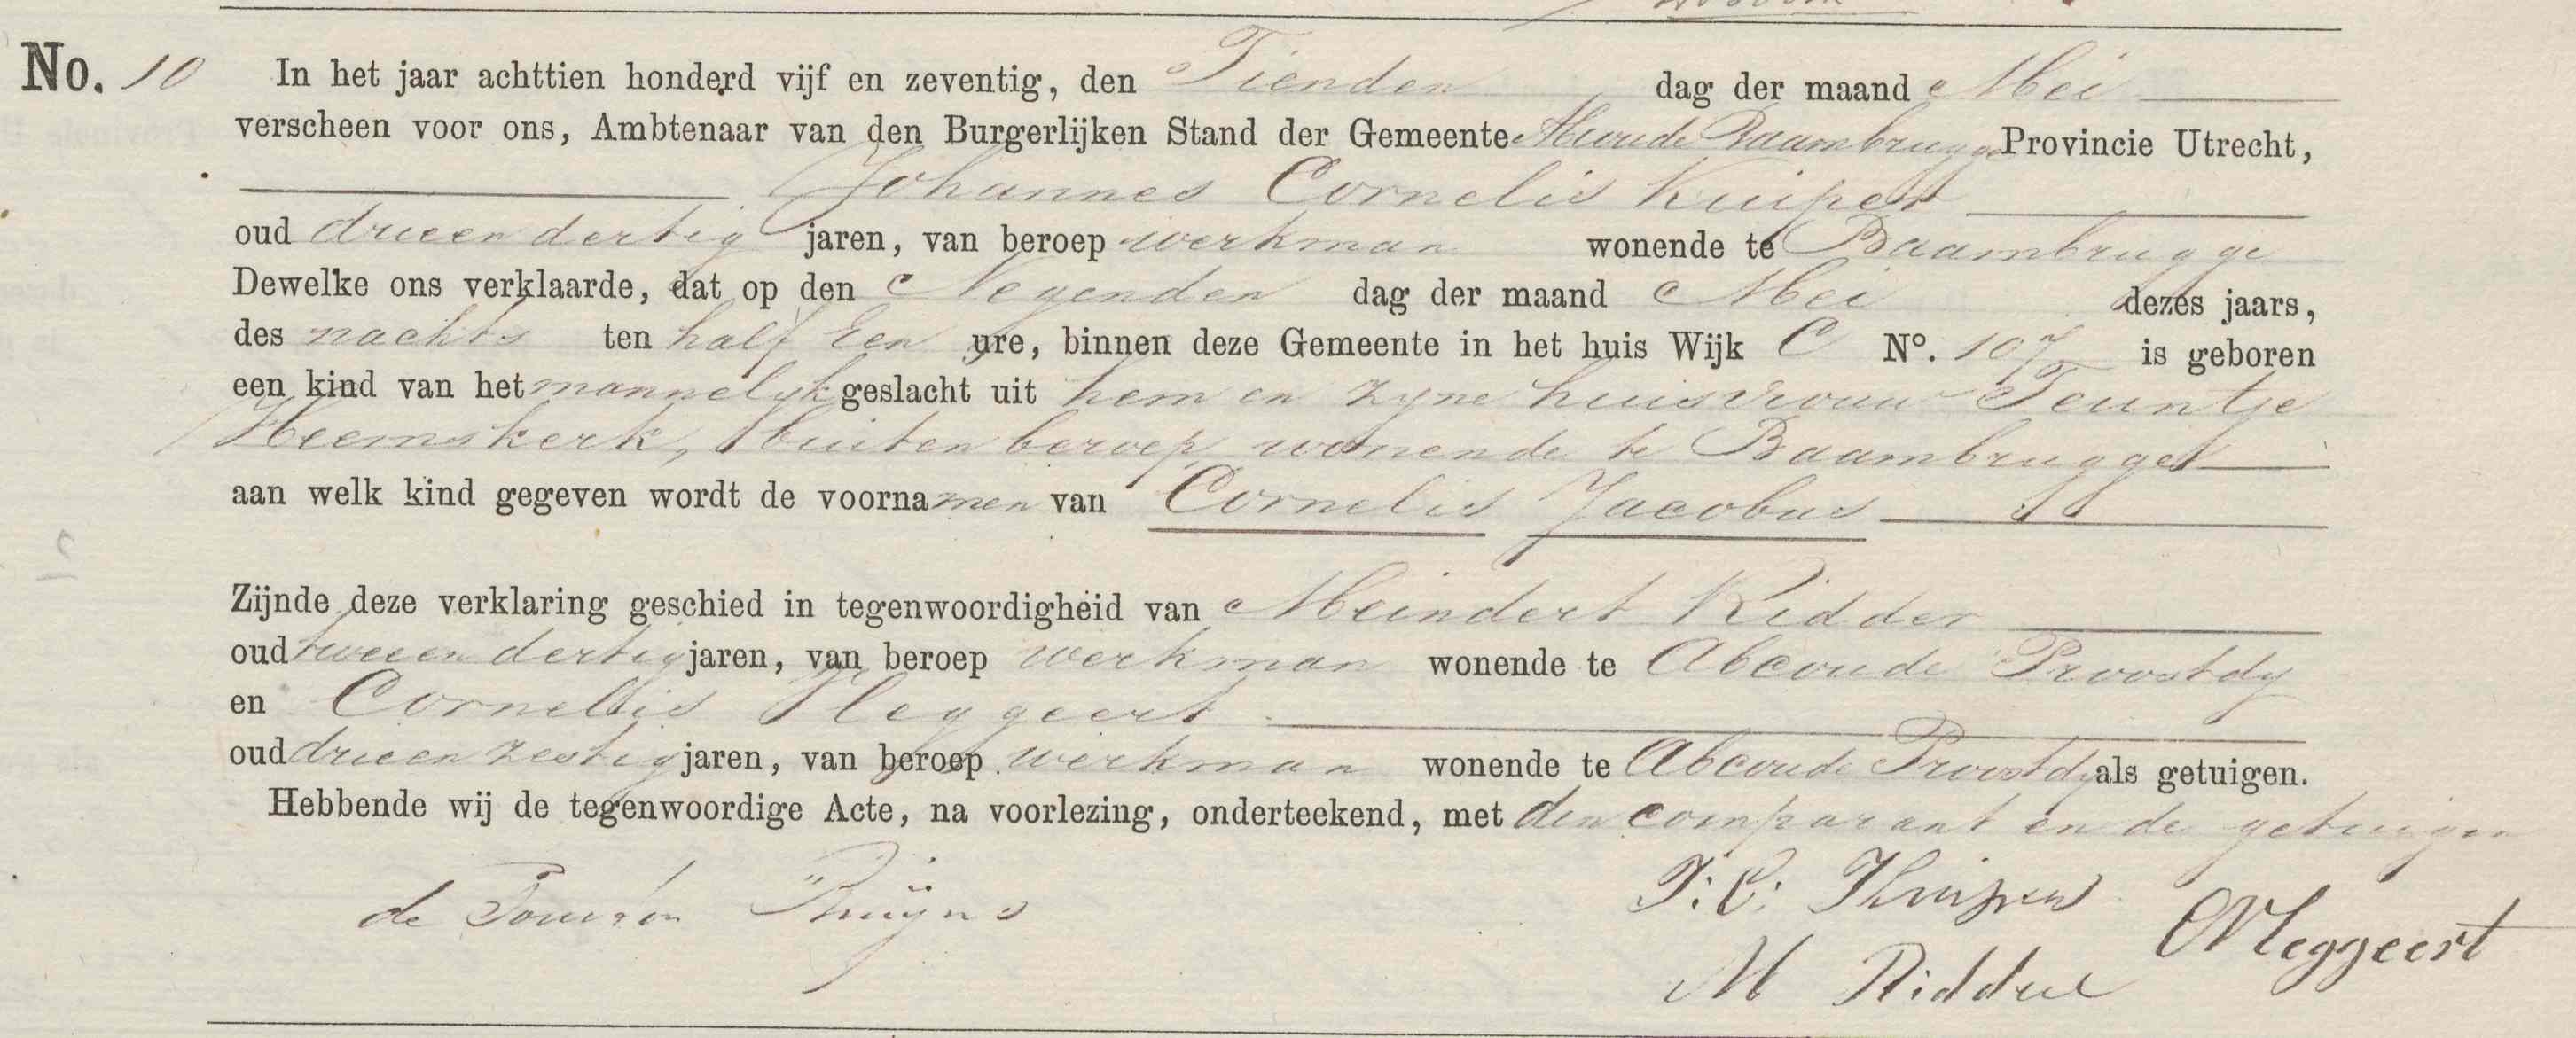 No. 10 In het jaar achttien honderd vijf en zeventig, den Tienden dag der maand Mei
verscheen voor ons, Ambtenaar van den Burgerlijken Stand der Gemeente Abcoude Baambrugge Provincie Utrecht,
Johannes Cornelis Kuiper
oud drieen dertig jaren, van beroep werkman wonende te Baambrugge
Dewelke ons verklaarde, dat op den Negenden dag der maand Mei dezes jaars,
des nachts ten half Een ure, binnen deze Gemeente in het huis Wijk C N°. 107 is geboren
een kind van het mannelijk geslacht uit hem en zijne huisvrouw Teuntje
Heemskerk, buiten beroep wonende te Baambrugge
aan welk kind gegeven wordt de voornamen van Cornelis Jacobus
Zijnde deze verklaring geschied in tegenwoordigheid van Meindert Ridder
oud tweeen dertig jaren, van beroep werkman wonende te Abcoude Proostdy
en Cornelis Pleggeert
oud drieen zestig jaren, van beroep werkman wonende te Abcoude Proostdy als getuigen.
Hebbende wij de tegenwoordige Acte, na voorlezing, onderteekend, met den comparant en de getuigen
de Ruijns
J: C: Kuiper
M Ridder